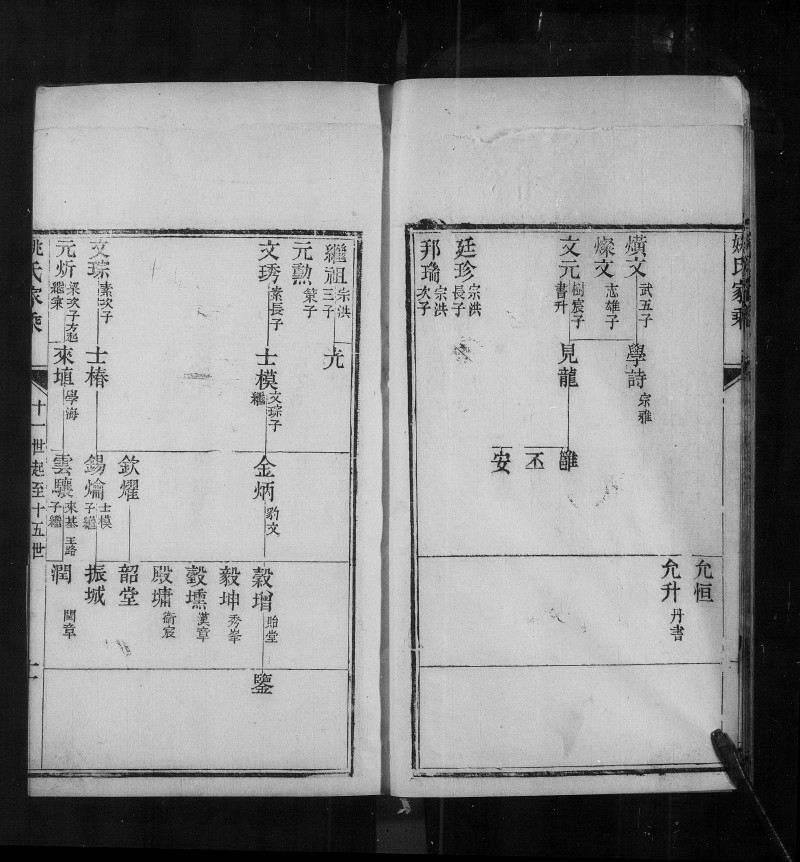 姚氏家乘
允恒
允升 丹書
燌文 武五子
學詩 宗雅
燦文 志雄子
文元 樹宸子 書升
見龍
雝
丕
安
廷珍 宗洪長子
邦瑞 宗洪次子
繼祖 宗洪三子
光
元勲 策子
文琇 素長子
士模 文琮子繼
金炳 豹文
榖增 貽堂
鑒
毅坤 秀峯
瑴壎 漢章
殿墉 衛宸
欽耀
韶堂
文琮 素次子
士椿
錫爚 士模子繼
振城
元炘 梁次子方起繼寀
來埴 學海
雲驤 來基子繼 王路
潤 閏章
姚氏家乘
十一世起至十五世